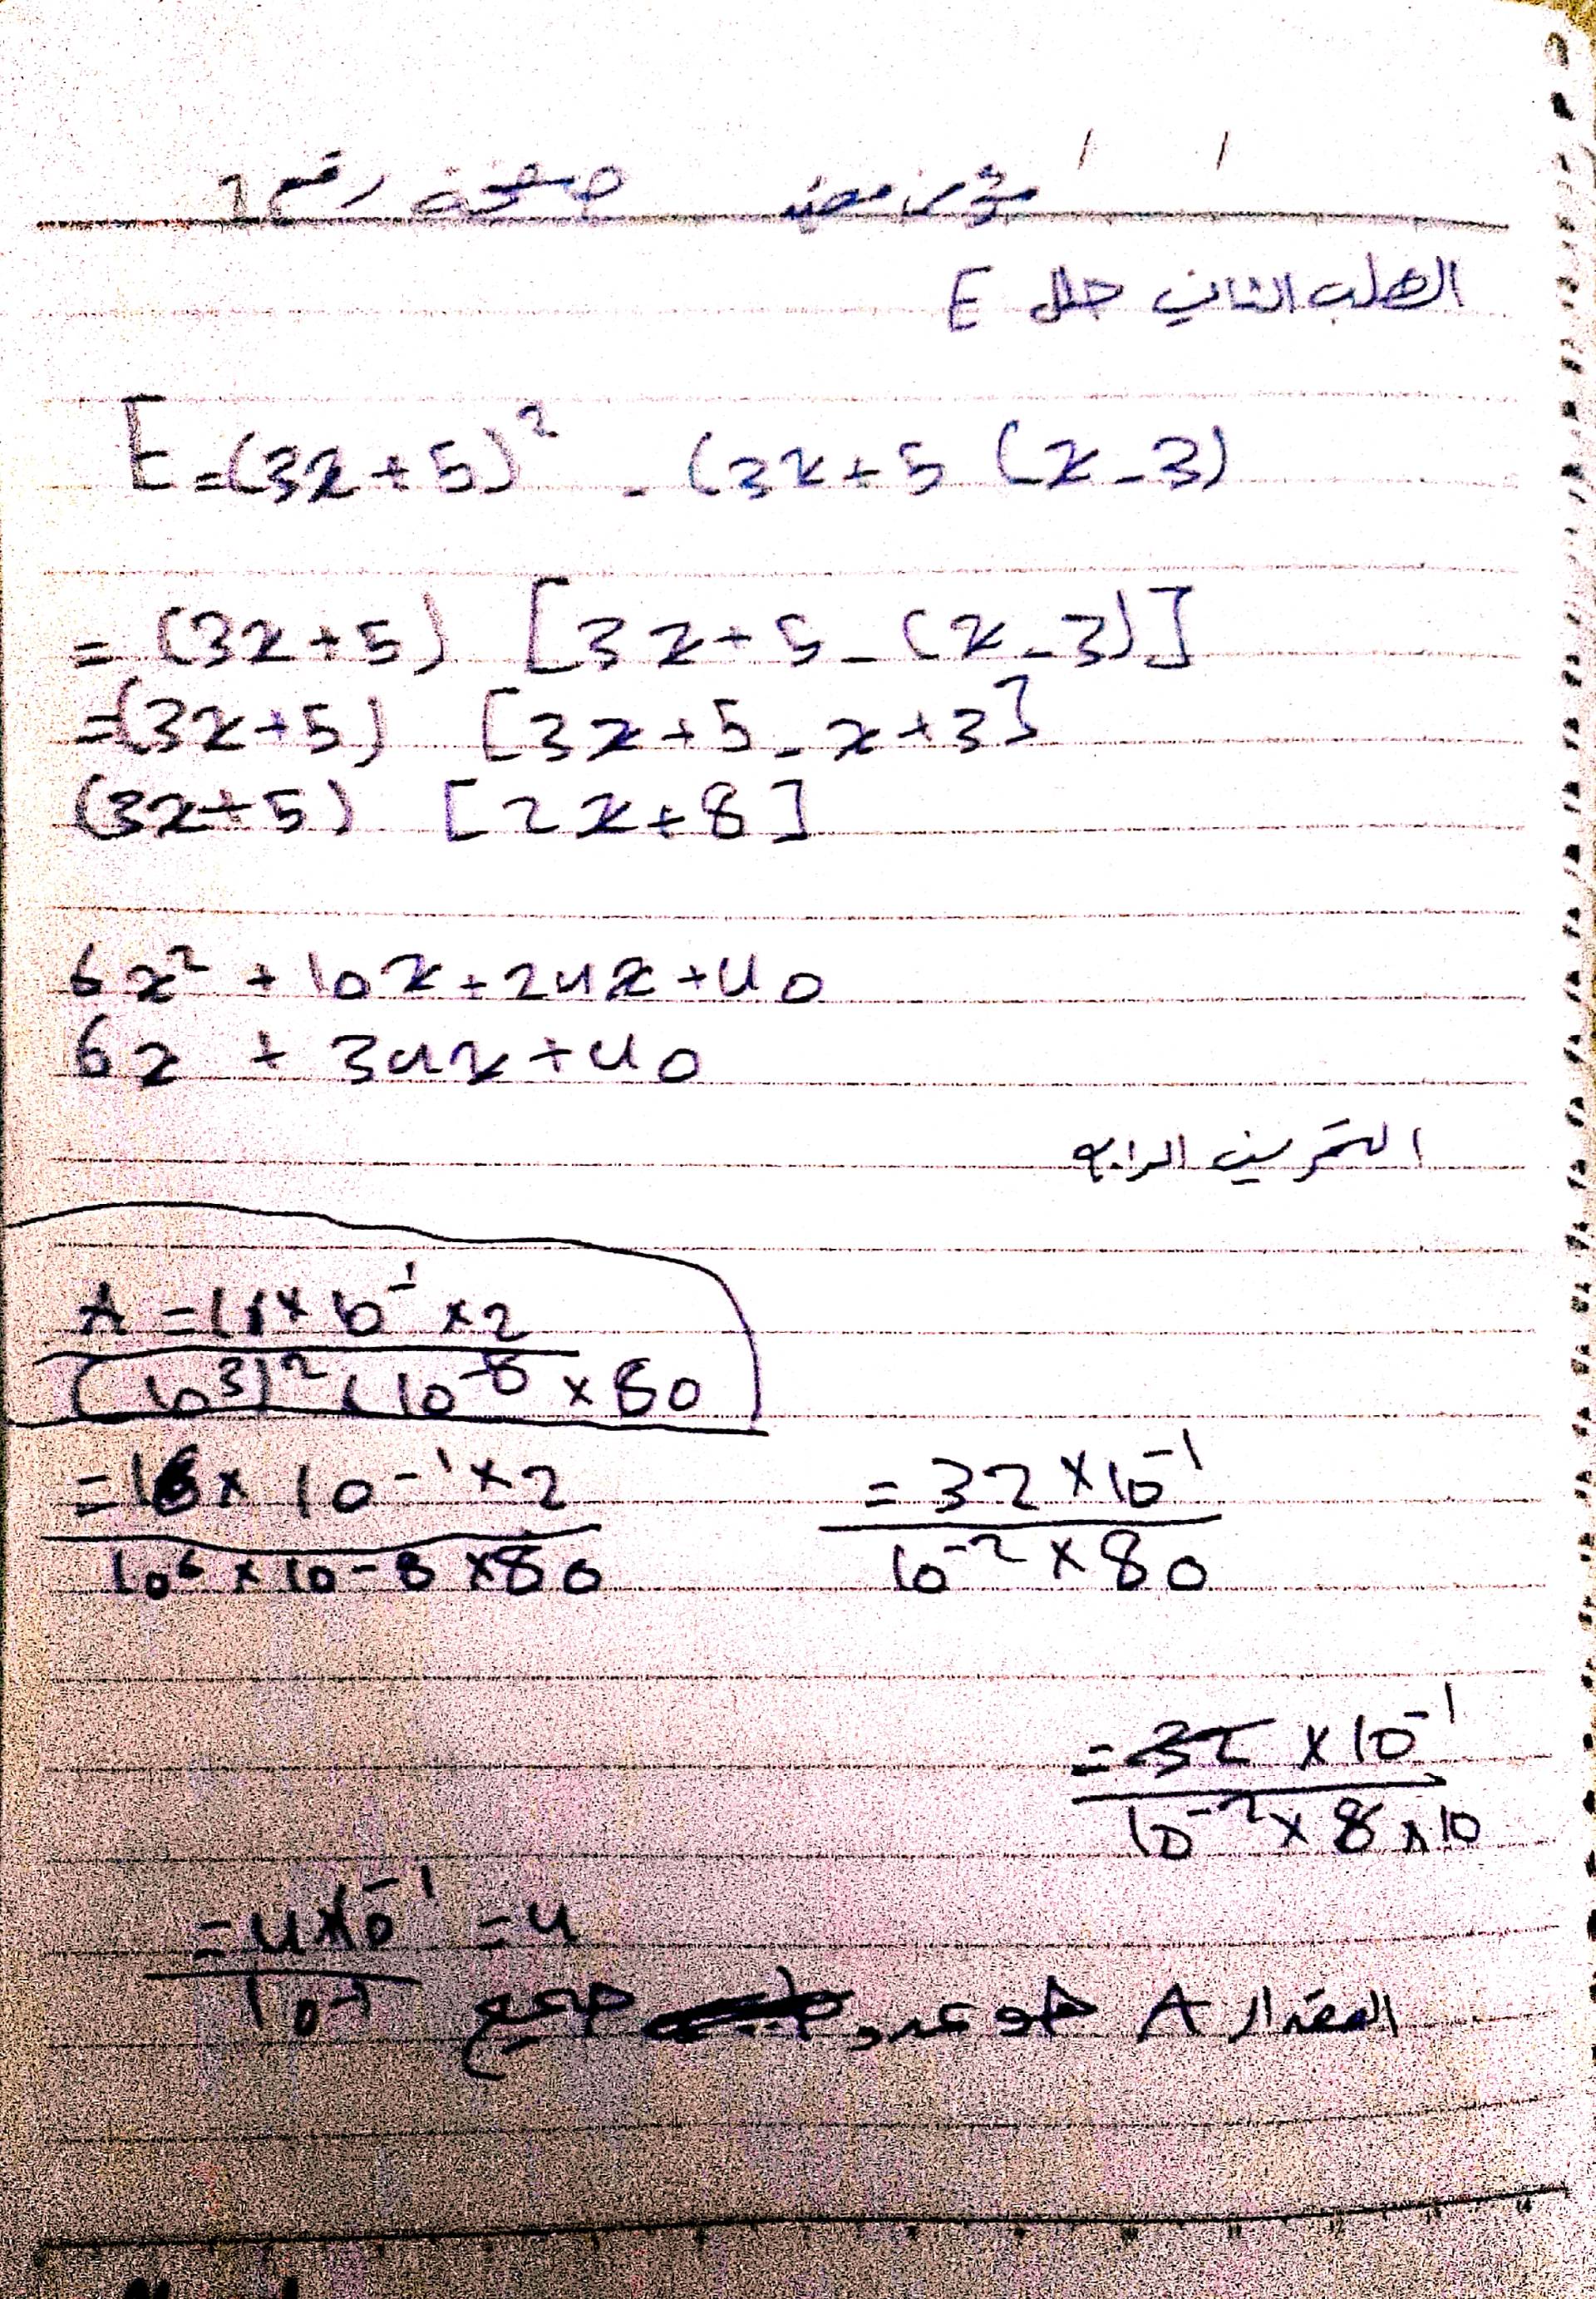 صفحة رقم 1
الطلب الثاني حلل E
E=(3x+5)² - (3x+5 (x-3)
= (3x+5) [3x+5-(x-3)]
=(3x+5) [3x+5-x+3]
(3x+5) [2x+8]
6x² + 10x+24x+40
6x + 34x+40
التمرين الرابع
A = 16×10⁻¹×2
(10³)² (10⁻⁸ × 80
=16× 10-¹×2 = 32×10⁻¹
10⁶×10-8×80 10⁻²×80
=32×10⁻¹
10⁻²×8×10
=4×10⁻¹ =4
10⁻¹
المقدار A هو عدد صحيح